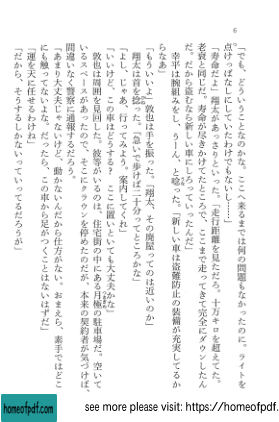 6
「でも、どういうことなのかな。ここへ来るまでは何の問題もなかったのに。ライトを
点けっぱなしにしていたわけでもないし……」
「寿命だよ」翔太があっさりといった。「走行距離を見ただろ。十万キロを超えてた。
老衰と同じだ。寿命が尽きかけてたところで、ここまで走ってきて完全にダウンしたん
だ。だから盗むなら新しい車にしろっていったんだ」
幸平は腕組みをし、うーん、と唸った。「新しい車は盗難防止の装備が充実してるか
らなあ」
「もういいよ」敦也は手を振った。「翔太、その廃屋ってのは近いのか」
翔太は首を捻った。「急いで歩けば二十分ってところかな」
「よし、じゃあ、行ってみよう。案内してくれ」
「いいけど、この車はどうする? ここに置いといても大丈夫かな」
敦也は周囲を見回した。彼等がいるのは、住宅街の中にある月極の駐車場だ。空いて
いるスペースがあったので、そこにクラウンを停めたのだが、本来の契約者が気づけば、
間違いなく警察に通報するだろう。
「あまり大丈夫じゃないけど、動かないんだから仕方がない。おまえら、素手ではどこ
にも触ってないよな。だったら、この車から足がつくことはないはずだ」
「運を天に任せるわけね」
「だから、そうするしかないっていってるだろうが」
homeofpdf.com
see more please visit: https://homeofpdf.